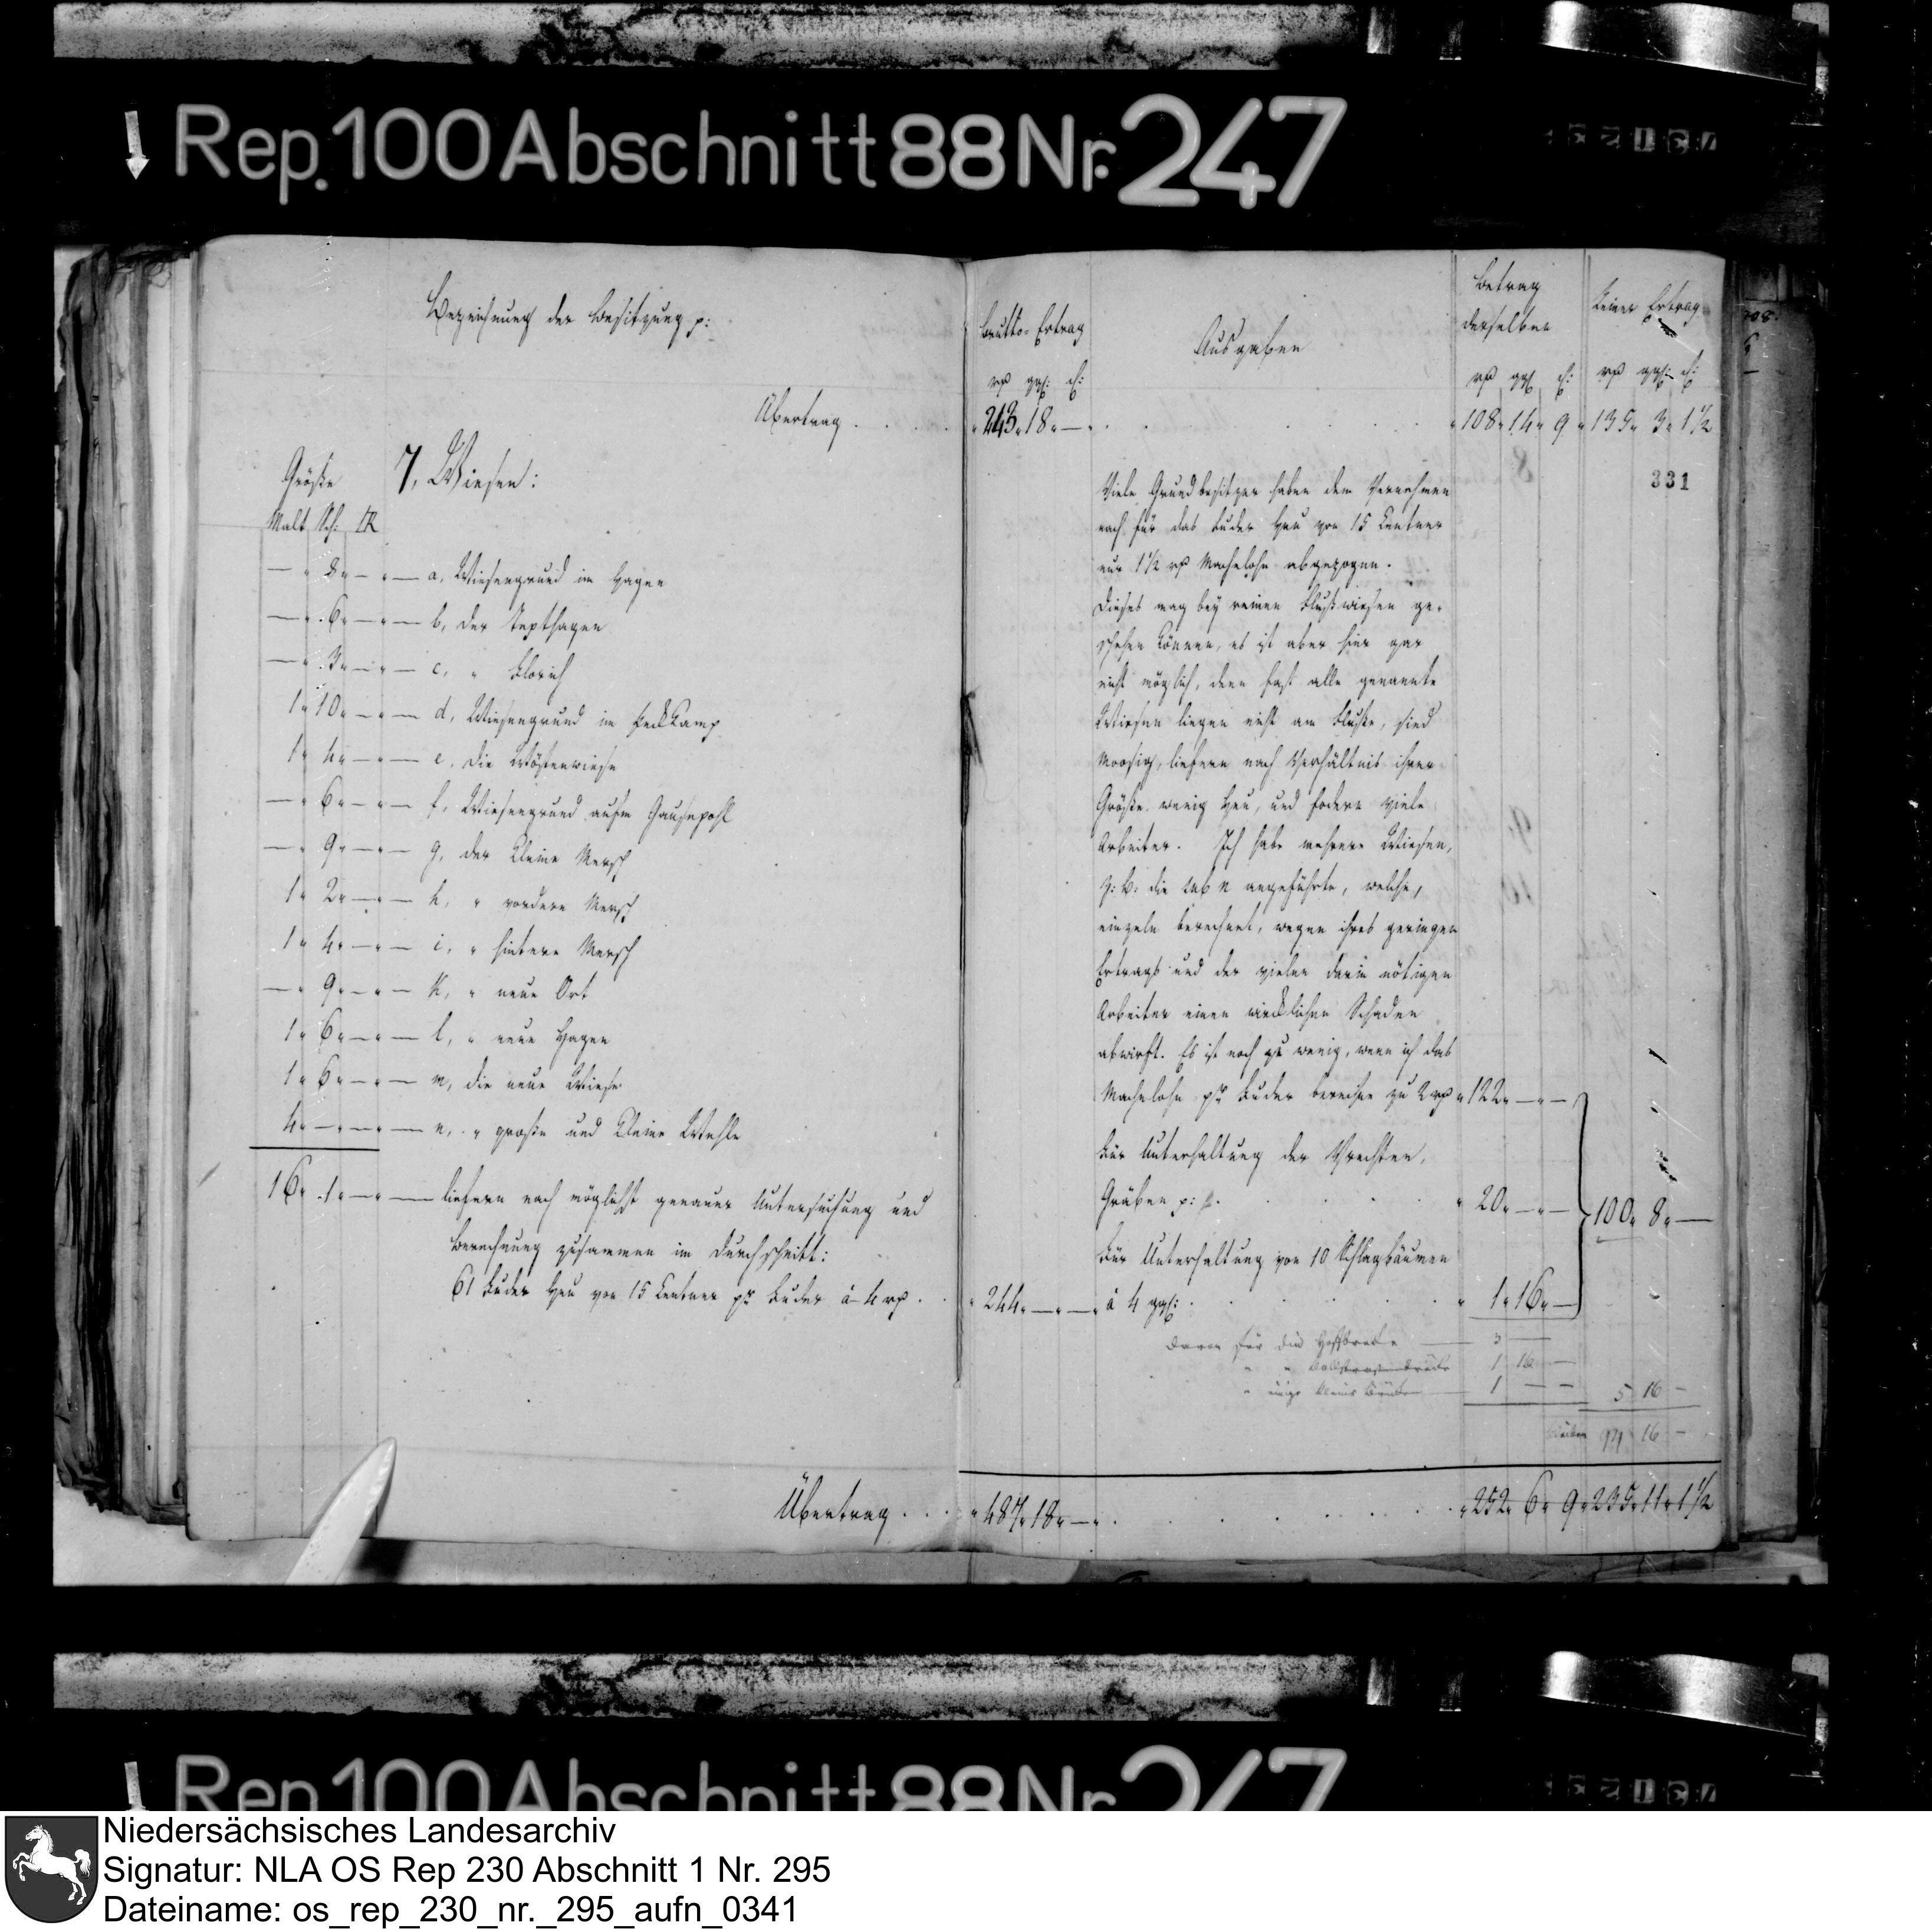 Rep. 100 Abschnitt 88 Nr. 247
Bezeichnung der Besitzung p:
Übertrag . . . .
Größe 7, Wiesen:
Malt Sch: □R
— " 8 " — " — a, Wiesengrund im Hagen
— " 6 " — " — b, der
— " 3 " — " — c, "
1 " 10 " — " — d, Wiesengrund im
1 " 4 " — " — e, die Wöstenwiese
— " 6 " — " — f, Wiesengrund aufm
— " 9 " — " — g, der kleine Mersch
1 " 2 " — " — h, " vordere Mersch
1 " 4 " — " — i, " hintere Mersch
— " 9 " — " — k, " neue Ort
1 " 6 " — " — l, " neue Hagen
1 " 6 " — " — m, die neue Wiese
4 " — " — " — n, " große und kleine Wehle
16 " 1 " — " — liefern nach möglichst genauer Untersuchung und
Berechnung zusammen im Durchschnitt:
61 Fuder Heu von 15 Centner pr Fuder á 4 rp . .
Übertrag . . .
Brutto-Ertrag
rp ggl: d:
" 243 " 18 " — "
" 244 " — " — "
" 487 " 18 " — "
Ausgaben
Viele Grundbesitzer haben dem Vernehmen
nach für das Fuder Heu von 15 Centner
nur 1 1/2 rp Macherlohn abgezogen.
Dieses mag bey reinen Flußwiesen ge-
schehen können, es ist aber hier gar
nicht möglich, denn fast alle genannte
Wiesen liegen nicht am Fluße, sind
moosig, liefern nach Verhältnis ihrer
Größe wenig Heu, und fodern viele
Arbeiter. Ich habe mehrere Wiesen,
z: B: die sub n angeführte, welche,
einzeln berechnet, wegen ihres geringen
Ertrags und der vielen darin nötigen
Arbeiter einen wircklichen Schaden
abwirft. Es ist noch zu wenig, wenn ich das
Macherlohn pr Fuder berechne zu 2 rp " 122 " — " —
Für Unterhaltung der Vrechten,
Gräben p: p. . . . . " 20 " — " —
Für Unterhaltung von 10 Schlagbäumen
á 4 ggl: . . . . " 1 " 16 " —
davon für die — 3 —
" " 1 16 —
" einige kleine Brücken — 1 — —
Betrag
derselben
rp ggl d:
" 108 " 14 " 9
" 252 " 6 " 9
Reiner Ertrag
rp ggl: d:
" 135 " 3 " 1 1/2
331
100 " 8 " —
5 16 —
bleiben 94 16 —
" 235 " 11 " 1 1/2
Rep. 100 Abschnitt 88 Nr. 247
Niedersächsisches Landesarchiv
Signatur: NLA OS Rep 230 Abschnitt 1 Nr. 295
Dateiname: os_rep_230_nr._295_aufn_0341